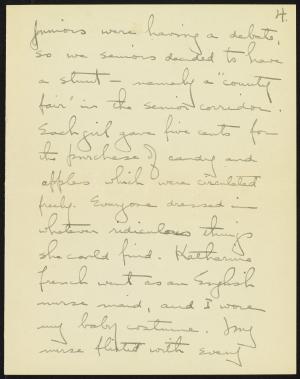 4.
juniors were having a debate,
so we seniors decided to have
a stunt – namely a "county
fair" in the senior corridor.
Each girl gave five cents for
the purchase of candy and
apples which were circulated
freely. Everyone dressed in
whatever ridiculous things
she could find. Katharine
French went as an English
nurse maid, and I wore
my baby costume. My
nurse flirted with every